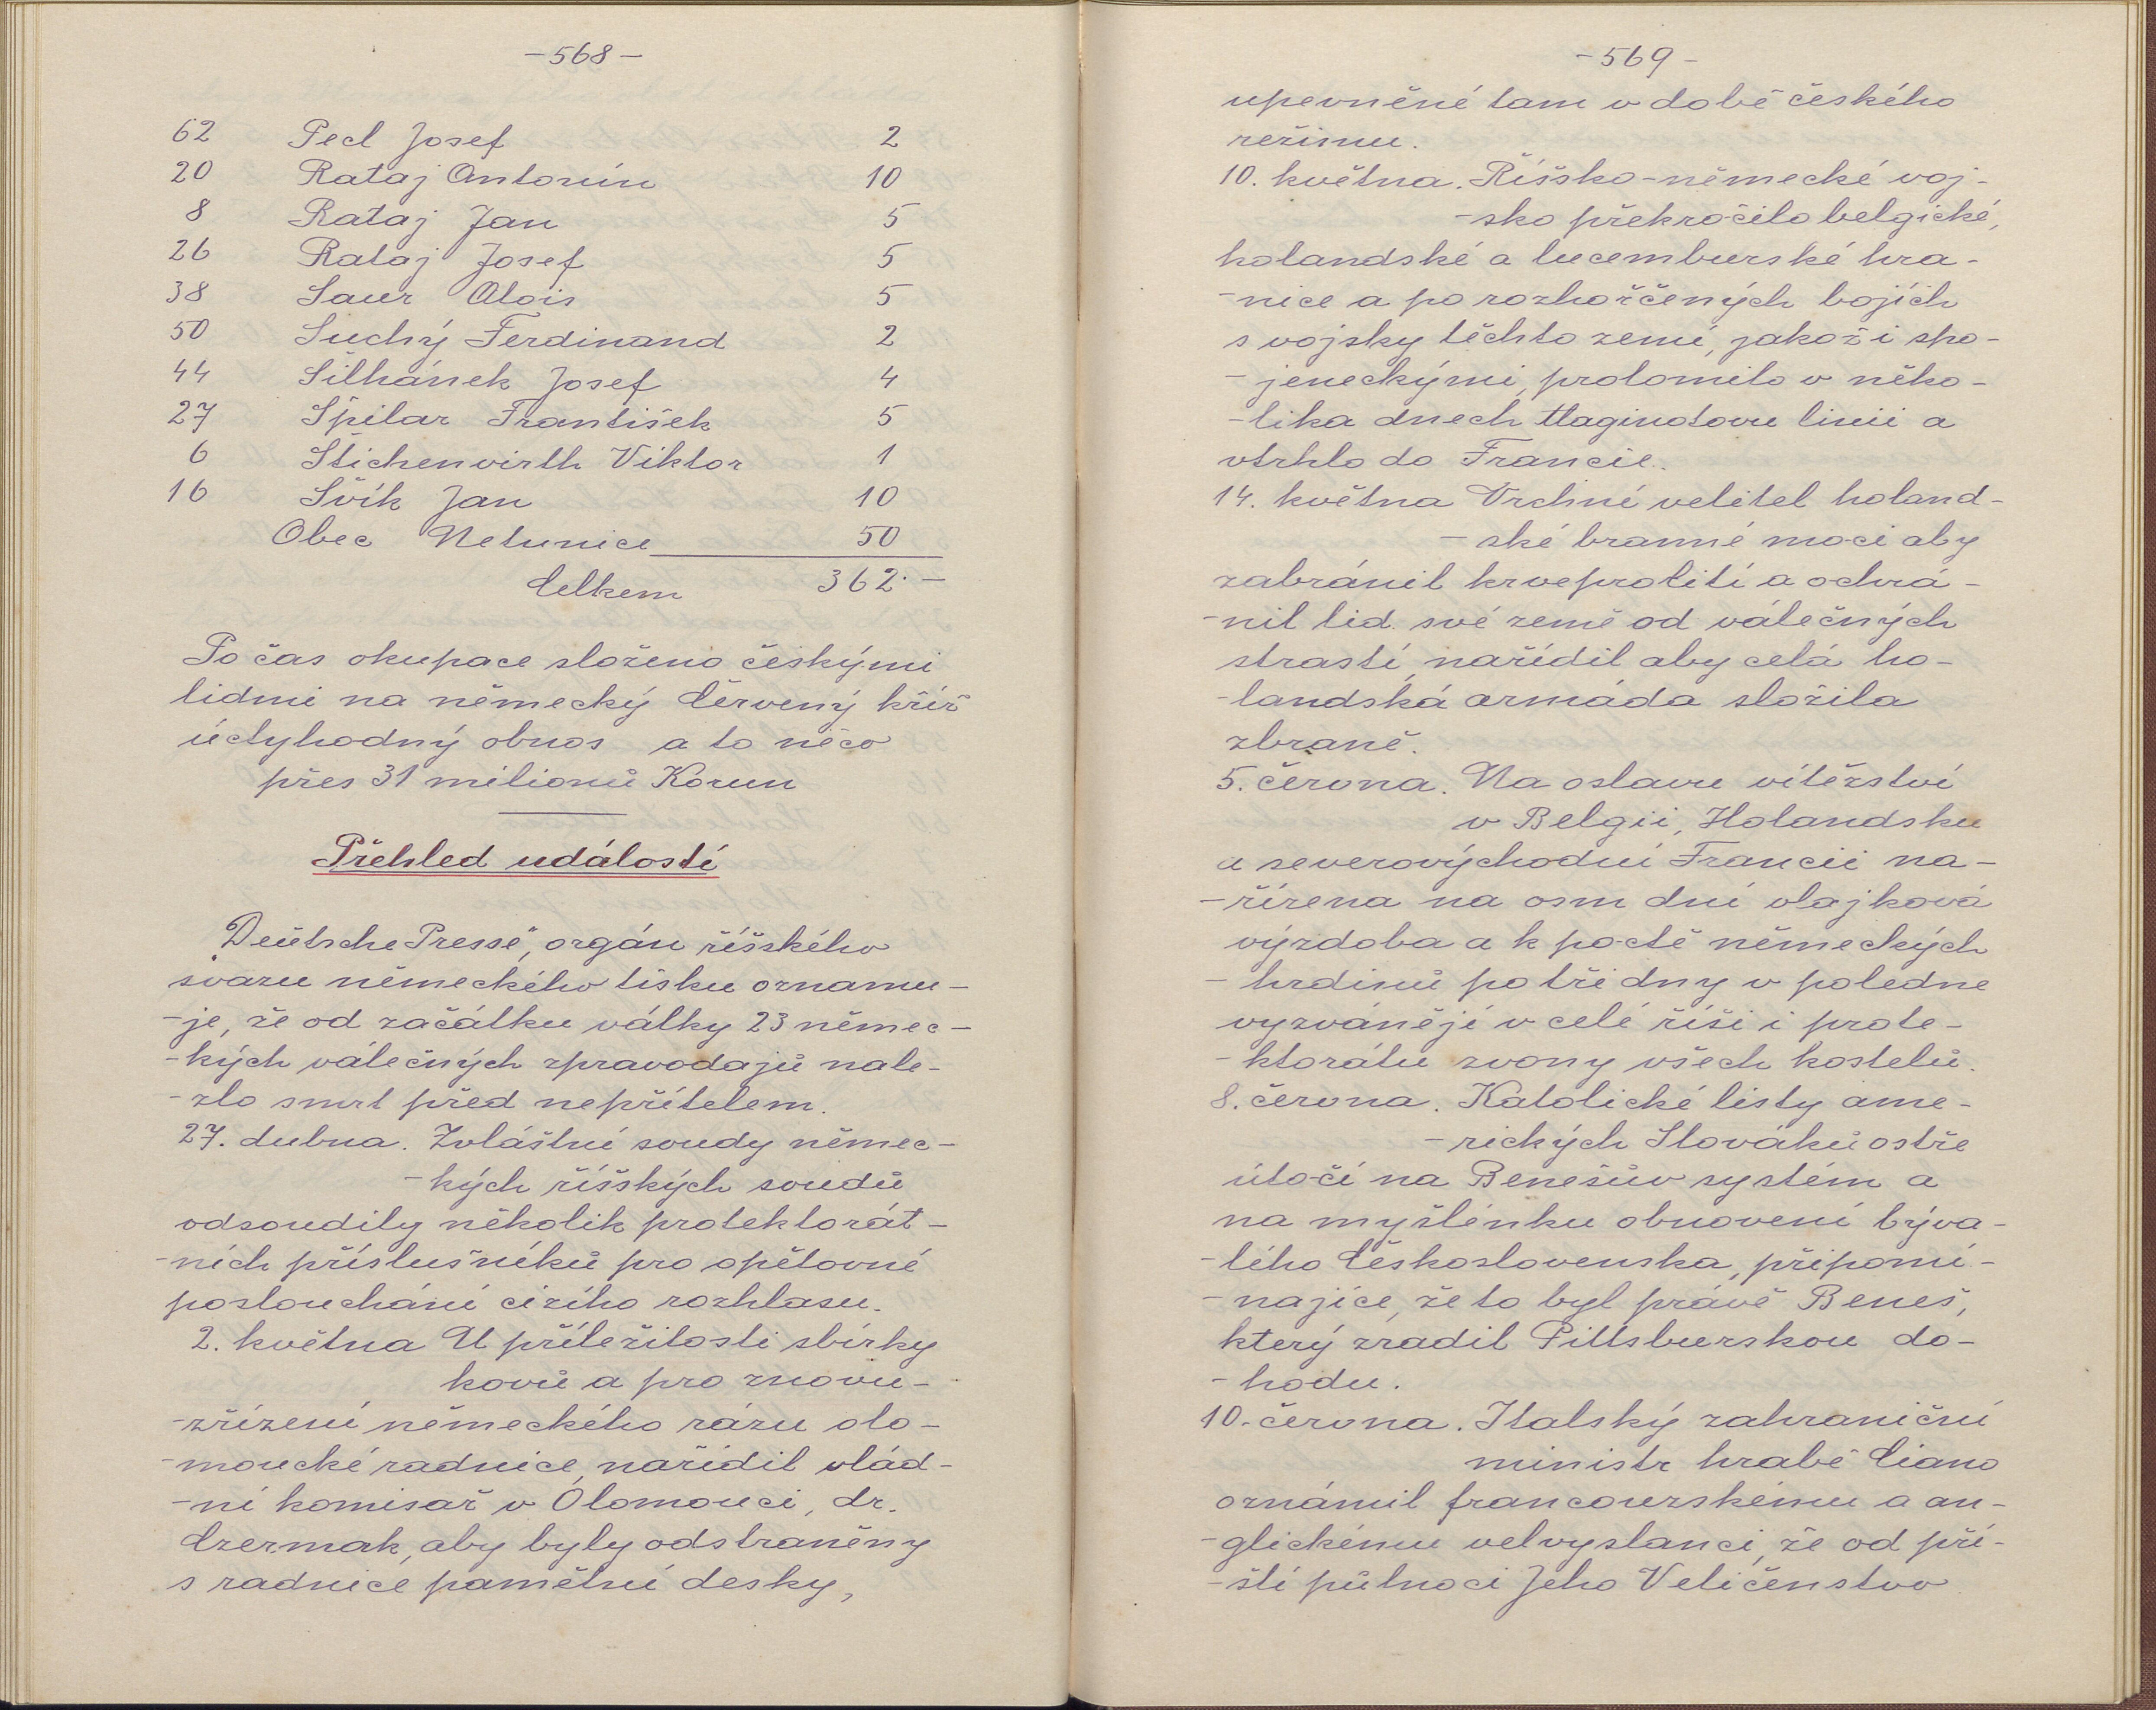 -568-
62 Pecl Josef 2
20 Rataj Antonín 10
8 Rataj Jan 5
26 Rataj Josef 5
38 Saur Alois 5
50 Suchý Ferdinand 2
44 Šilhánek Josef 4
27 Špilar František 5
6 Štichenwirth Viktor 1
16 Švík Jan 10
Obec Netunice 50
Celkem 362·—
Po čas okupace složeno českými
lidmi na německý Červený kříž
úctyhodný obnos a to něco
přes 31 milionů Korun
Přehled událostí
„Deutsche Presse", orgán říšského
svazu německého tisku oznamu-
-je, že od začátku války 23 němec-
-kých válečných zpravodajů nale-
-zlo smrt před nepřítelem.
27. dubna. Zvláštní soudy němec-
-kých říšských soudů
odsoudily několik protektorát-
-ních příslušníků pro opětovné
poslouchání cizího rozhlasu.
2. května U příležitosti sbírky
kovů a pro znovu-
-zřízení německého rázu olo-
-moucké radnice, nařídil vlád-
-ní komisař v Olomouci, dr.
Czermak, aby byly odstraněny
s radnice pamětní desky,
-569-
upevněné tam v době českého
režimu.
10. května. Říšsko-německé voj-
-sko překročilo belgické,
holandské a lucemburské hra-
-nice a po rozhořčených bojích
s vojsky těchto zemí, jakož i spo-
-jeneckými, prolomilo v něko-
-lika dnech Maginotovu linii a
vtrhlo do Francie.
14. května Vrchní velitel holand-
-ské branné moci aby
zabránil krveprolití a ochrá-
-nil lid své země od válečných
strastí, nařídil aby celá ho-
-landská armáda složila
zbraně.
5. června. Na oslavu vítězství
v Belgii, Holandsku
a severovýchodní Francii na-
-řízena na osm dní vlajková
výzdoba a k poctě německých
-hrdinů po tři dny v poledne
vyzvánějí v celé říši i prote-
-ktorátu zvony všech kostelů.
8. června. Katolické listy ame-
-rických Slováků ostře
útočí na Benešův systém a
na myšlénku obnovení býva-
-lého Československa, připomí-
-najíce, že to byl právě Beneš,
který zradil Pittsburskou do-
-hodu.
10. června. Italský zahraniční
ministr hrabě Ciano
oznámil francouzskému a an-
-glickému velvyslanci, že od pří-
-ští půlnoci Jeho Veličenstvo